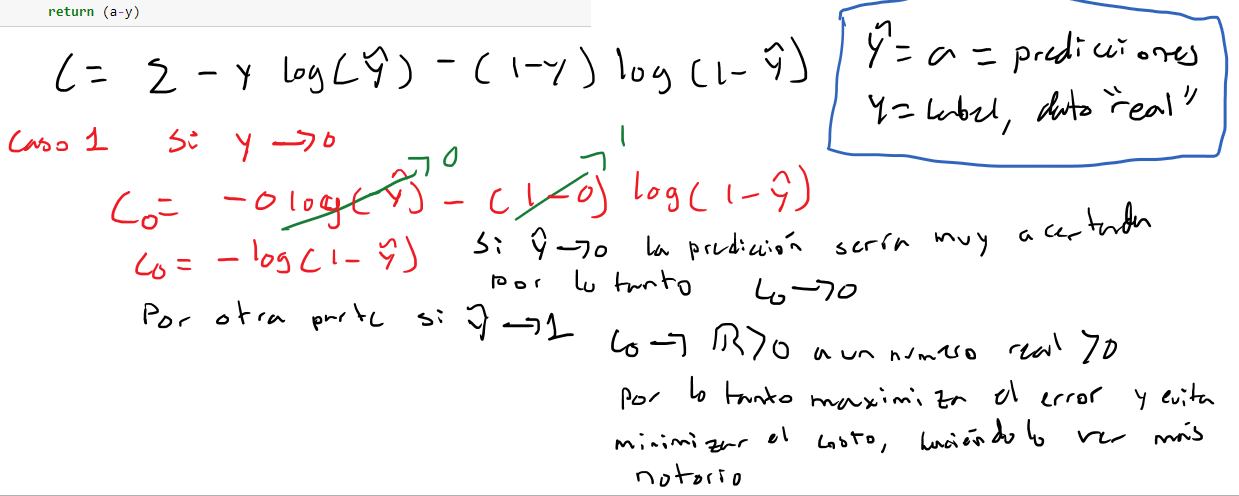 return (a-y)
C = Σ - y log(ŷ) - (1-y) log(1-ŷ)
ŷ = a = predicciones
y = Label, dato "real"
Caso 1 Si y → 0
C₀ = -0 log(ŷ) → 0 - (1-0) → 1 log(1-ŷ)
C₀ = -log(1-ŷ)
Si ŷ → 0 la predicción sería muy acertada
por lo tanto C₀ → 0
Por otra parte si ŷ → 1
C₀ → ℝ > 0 a un numero real > 0
por lo tanto maximiza el error y evita
minimizar el costo, haciéndolo ver más
notorio